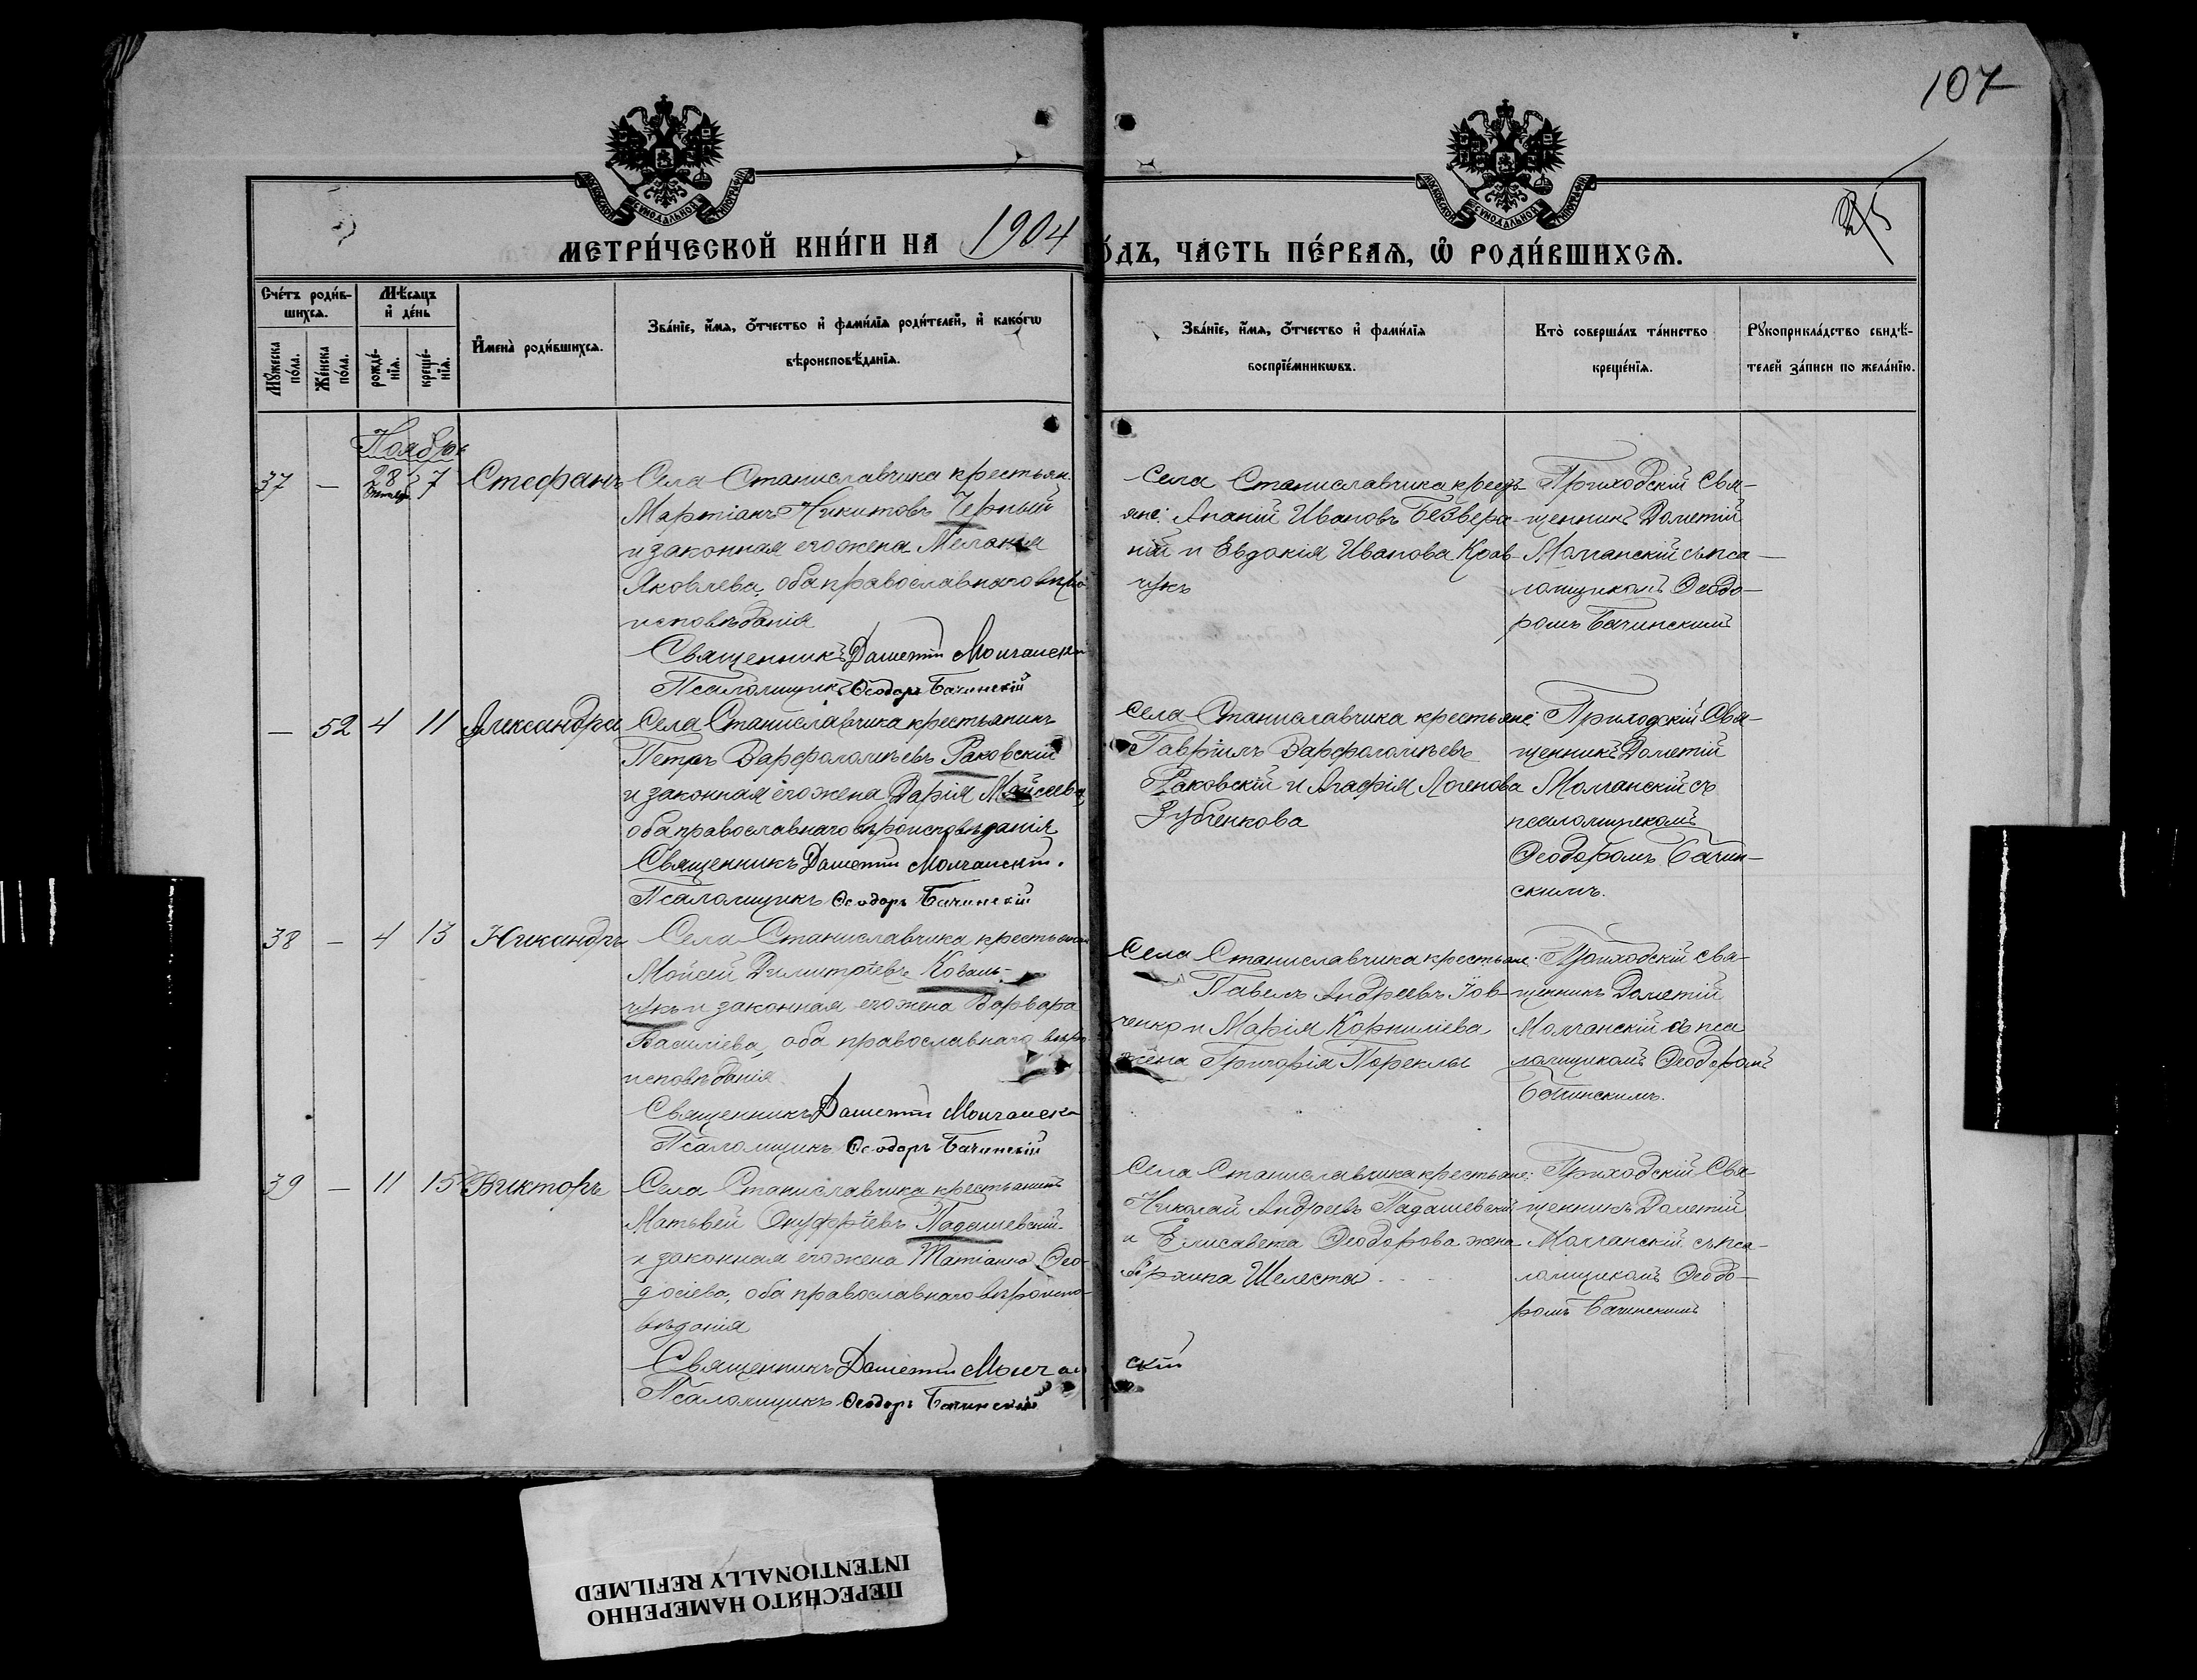 107
МОСКОВСКОЙ СѴНОДАЛЬНОЙ ТИПОГРАФІИ
МОСКОВСКОЙ СѴНОДАЛЬНОЙ ТИПОГРАФІИ
МЕТРИ́ЧЕСКОЙ КНИ́ГИ НА 1904
О́ДЪ, ЧА́СТЬ ПЕ́РВАѦ, Ѿ РОДИ́ВШИХСѦ.
Сче́тъ роди́в-
шихсѧ.
Мꙋ́жеска по́ла.
Же́нска по́ла.
Мѣ́сѧцъ
и҆ де́нь
рожде́-
нїѧ.
креще́-
нїѧ.
И҆мена̀ роди́вшихсѧ.
Зва́нїе, и҆́мѧ, о҆́тчество и҆ фами́лїѧ роди́телей, и҆ како́гѡ
вѣроисповѣ́данїѧ.
Зва́нїе, и҆́мѧ, о҆́тчество и҆ фами́лїѧ
воспрїе́мникѡвъ.
Кто̀ соверша́лъ та́инство
креще́нїѧ.
Рꙋкоприкла́дство свидѣ́-
телей за́писи по жела́нїю.
Ноябрь
37 — 28 Октября 7 Стефанъ
Села Станиславчика крестьян.
Мартіанъ Никитовъ Черный
и законная его жена Меланія
Яковлева, оба православнаго вѣро
исповѣданія
Священникъ Дометій Молчанскій
Псаломщикъ Ѳеодоръ Бачинскій
Села Станиславчика кресть-
яне: Ананій Ивановъ Безвера-
ній и Евдокія Иванова Крав-
чукъ
Приходскій Свя-
щенникъ Дометій
Молчанскій съ пса-
ломщикомъ Ѳеодо-
ромъ Бачинскимъ
— 52 4 11 Александра
Села Станиславчика крестьянинъ
Петръ Варфоломѣевъ Раковскій
и законная его жена Дарія Мойсеева
оба православнаго вѣроисповѣданія
Священникъ Дометій Молчанскій.
Псаломщикъ Ѳеодоръ Бачинскій
Села Станиславчика крестьяне:
Гавріилъ Варфоломѣевъ
Раковскій и Агафія Логенова
Зубенкова
Приходскій Свя-
щенникъ Дометій
Молчанскій съ
псаломщикомъ
Ѳеодоромъ Бачин-
скимъ.
38 — 4 13 Никандръ
Села Станиславчика крестьянин
Мойсей Димитріевъ Коваль-
чукъ и законная его жена Варвара
Василіева, оба православнаго вѣро-
исповѣданія
Священникъ Дометій Молчанскій
Псаломщикъ Ѳеодоръ Бачинскій
Села Станиславчика крестьяне:
Павелъ Андреевъ Іов-
ченко и Марія Корнилiева
жена Григорія Пореклы
Приходскій Свя-
щенникъ Дометій
Молчанскій съ пса
ломщикомъ Ѳеодоромъ
Бачинскимъ.
39 — 11 15 Викторъ
Села Станиславчика крестьянинъ
Матвей Онуфріевъ Падашевскій
и законная его жена Татіанна Ѳео-
досіева, оба православнаго вѣроиспо-
вѣданія
Священникъ Дометій Молчанскій
Псаломщикъ Ѳеодоръ Бачинскій
Села Станиславчика крестьяне:
Николай Андреевъ Падашевскій
и Елисавета Ѳеодорова жена
Архипа Шелеста
Приходскій Свя-
щенникъ Дометій
Молчанскій съ пса-
ломщикомъ Ѳеодо-
ромъ Бачинскимъ
ПЕРЕСНЯТО НАМЕРЕННО
INTENTIONALLY REFILMED